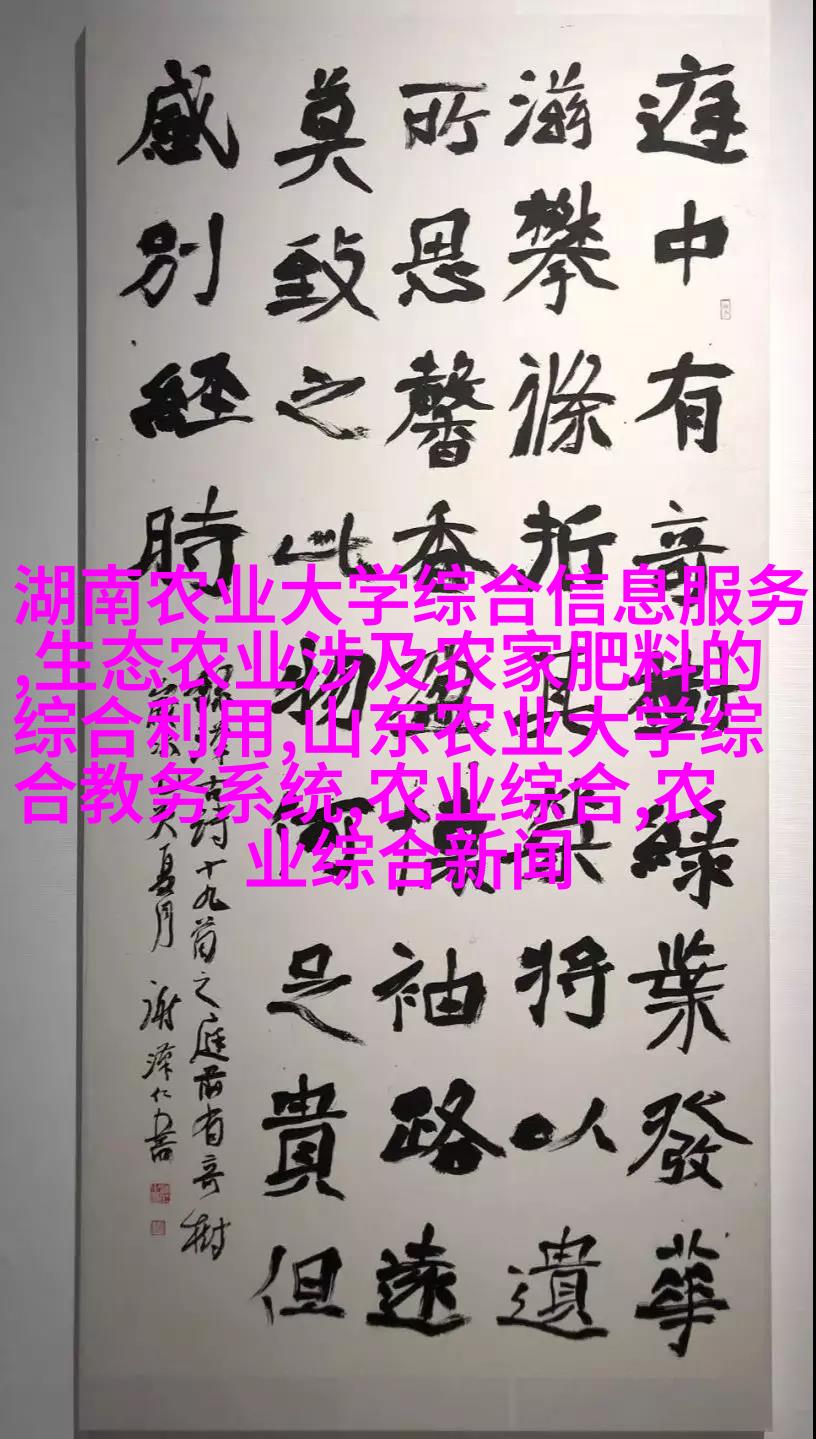 庭中有奇樹緑葉發華
滋攀條折其榮將以遺
所思馨香盈懷袖路遠
莫致之此物何足貴但
感別經時
古詩十九首之庭前有奇樹
夏月 謝澤仁書
湖南农业大学综合信息服务
,生态农业涉及农家肥料的
综合利用,山东农业大学综
合教务系统,农业综合,农
业综合新闻